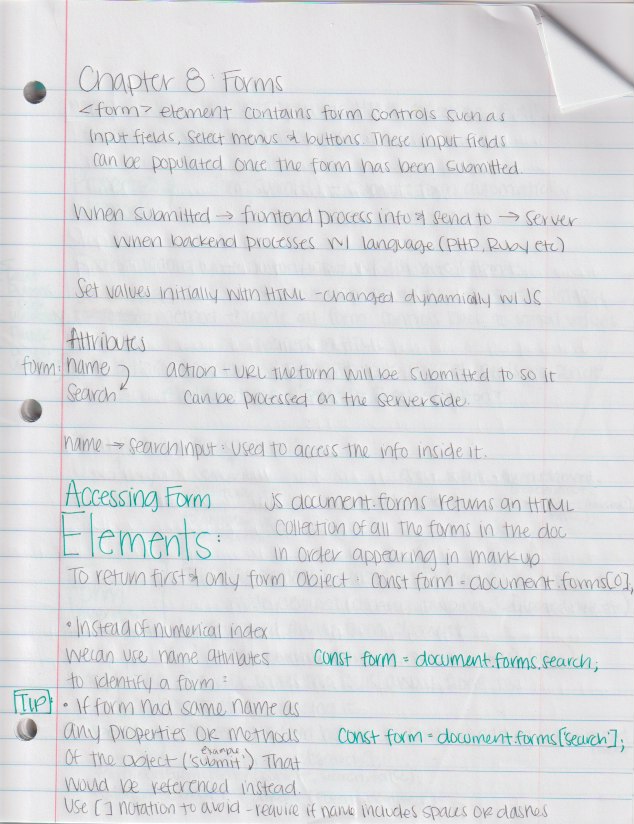 Chapter 8: Forms
<form> element contains form controls such as
input fields, select menus & buttons. These input fields
can be populated once the form has been submitted.
When submitted → frontend process info & send to → server
when backend processes w/ language (PHP, Ruby etc)
Set values initially with HTML - changed dynamically w/ JS
Attributes
form: name action - URL the form will be submitted to so it
search can be processed on the serverside.
name → searchInput: used to access the info inside it.
Accessing Form
Elements:
JS document.forms returns an HTML
collection of all the forms in the doc
in order appearing in markup
To return first & only form object: const form = document.forms[0];
• Instead of numerical index
we can use name attributes
to identify a form:
const form = document.forms.search;
TIP: • If form had same name as
any properties OR methods
of the object (example 'submit') That
would be referenced instead.
const form = document.forms['search'];
Use [ ] notation to avoid - require if name includes spaces or dashes